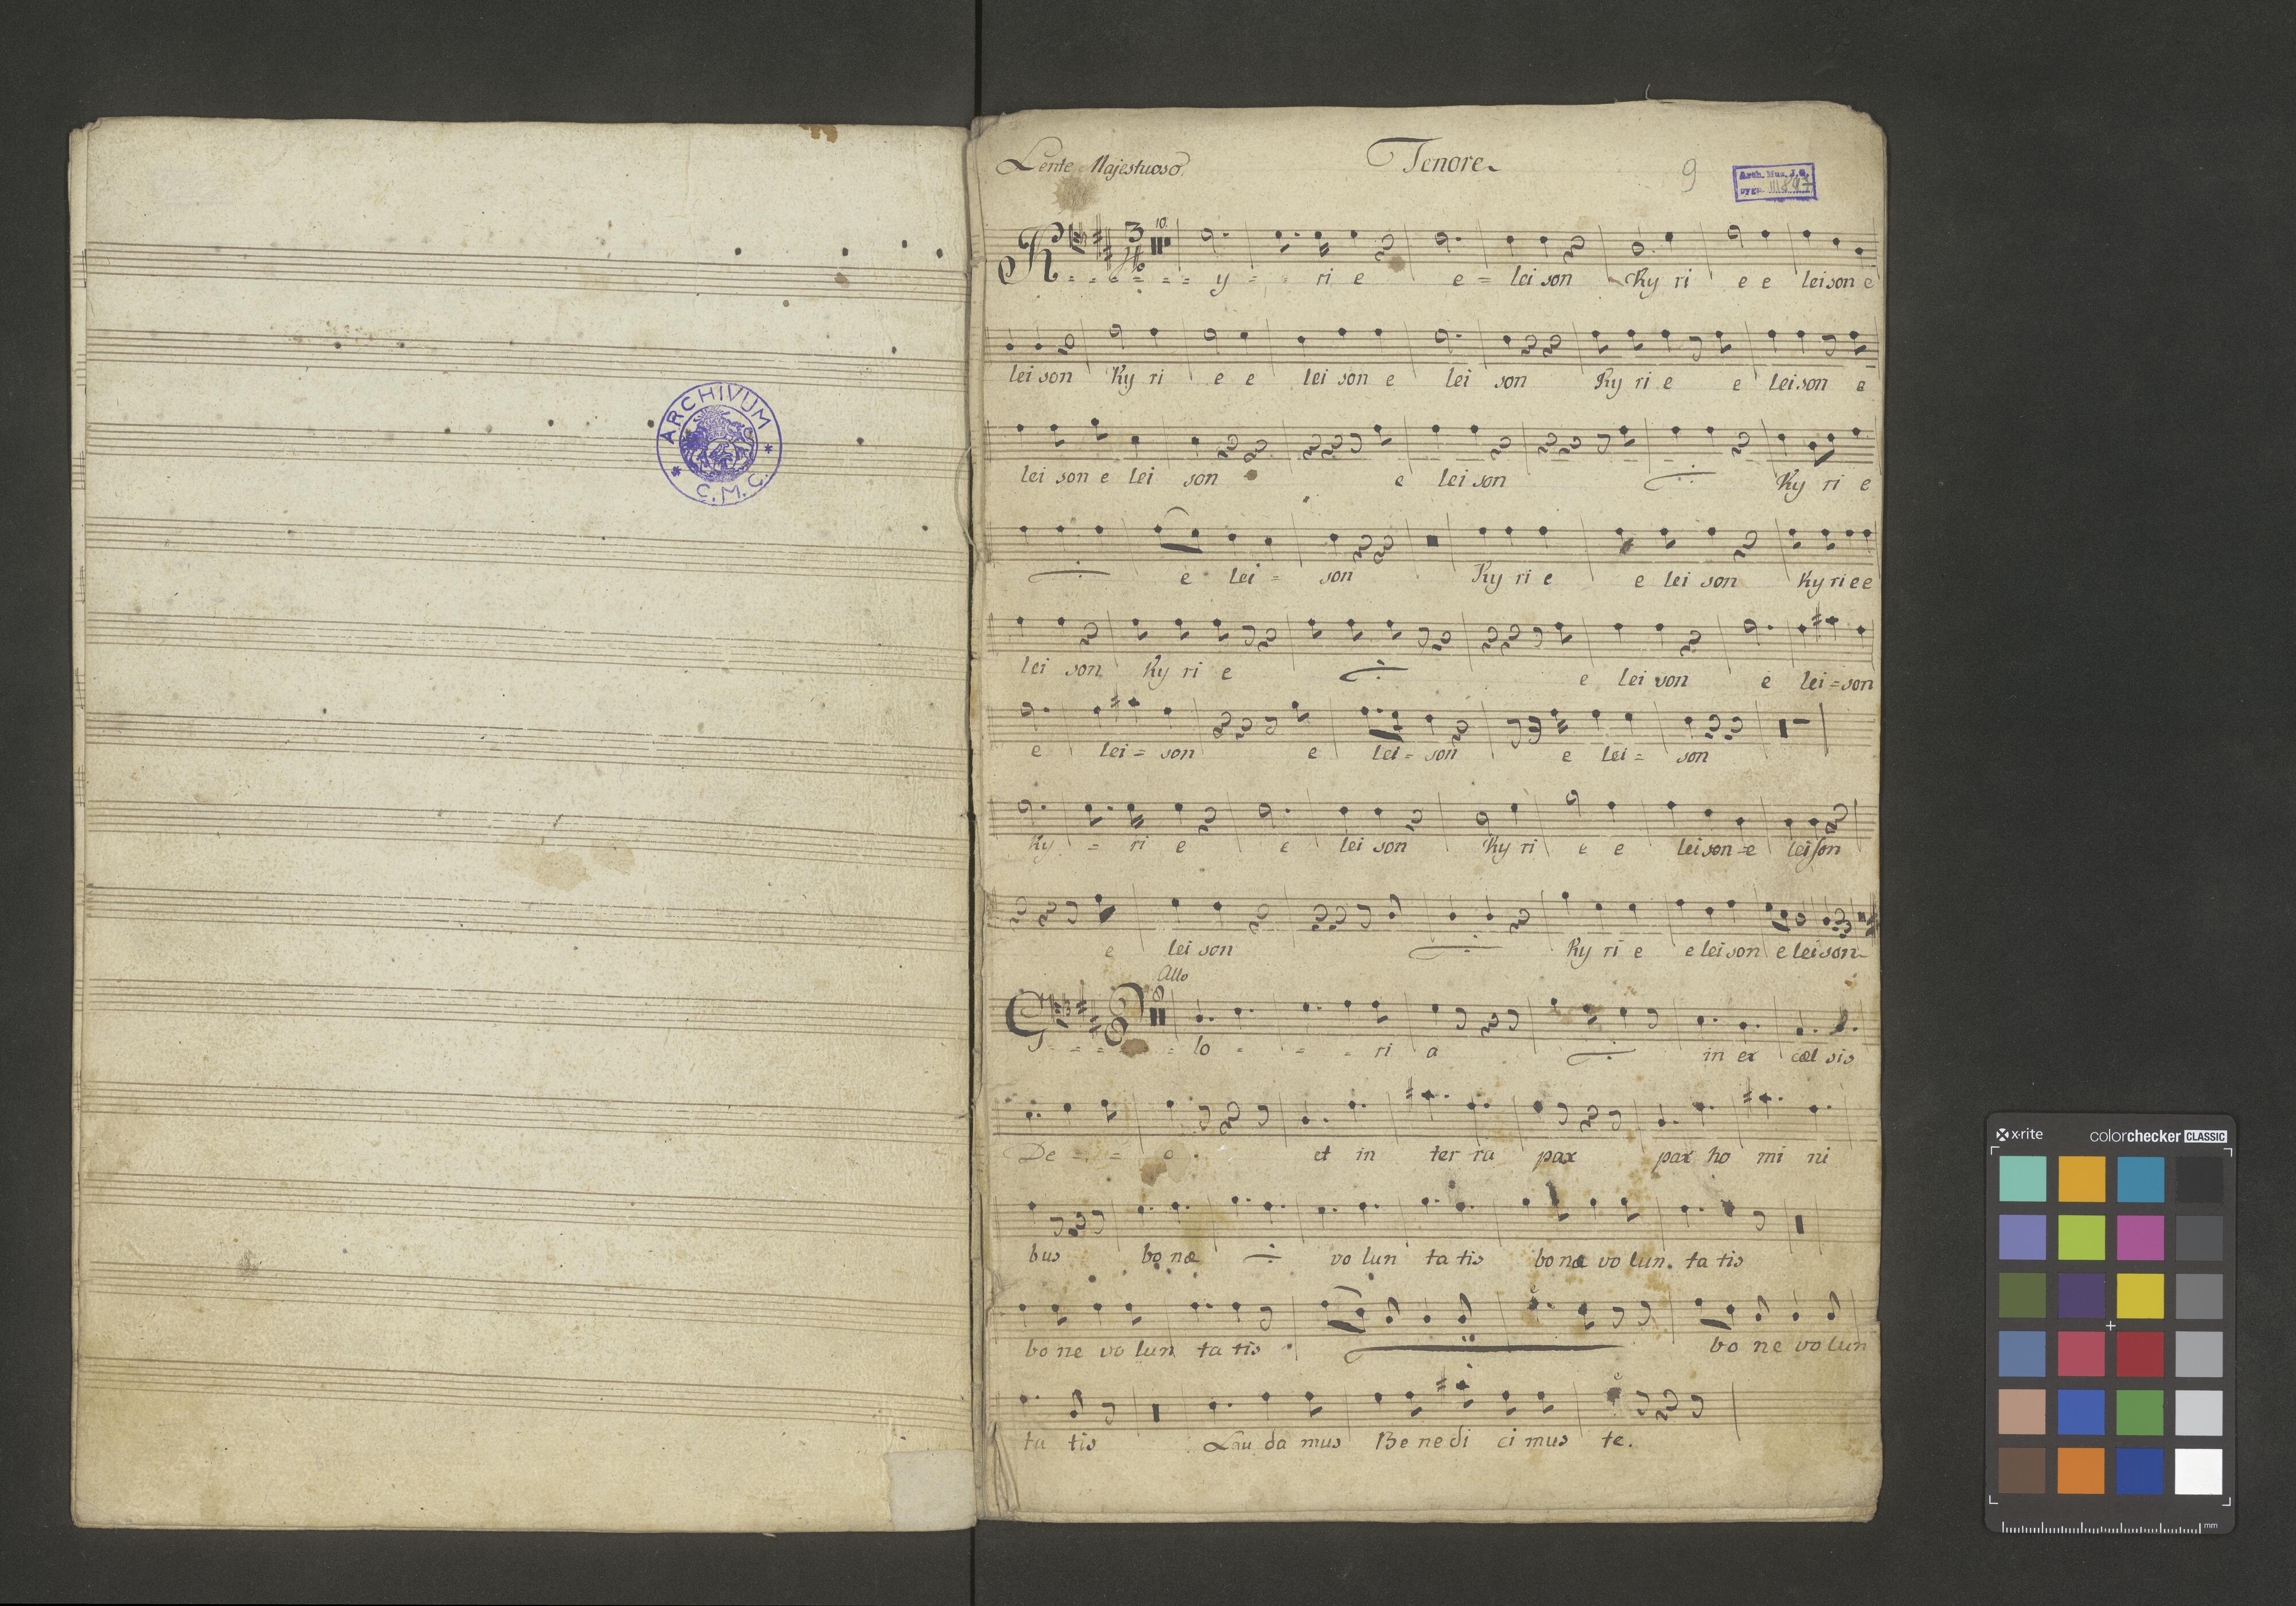 ARCHIVUM
C.M.C.
Lente Majestuoso.
Tenore
9
Arch. Mus. J.G.
sygn.
10
3
4
Ky = ri e e = lei son Ky ri e e lei son e
lei son Ky ri e e lei son e lei son Ky ri e e lei son e
lei son e lei son e lei son Ky ri e
e lei = son Ky ri e e lei son Ky ri e e
lei son Ky ri e e lei son e lei = son
e lei = son e lei = son e lei = son
Ky = ri e e lei son Ky ri e e lei son = e lei son
e lei son Ky ri e e lei son e lei son
Allo
G = = = lo - = - ri a in ex cœl sis
De = = o. et in ter ra pax pax ho mi ni
bus bo næ vo lun ta tis bo næ vo lun. ta tis
bo ne vo lun ta tis bo ne vo lun
ta tis Lau da mus Be ne di ci mus te.
x-rite
colorchecker CLASSIC
mm